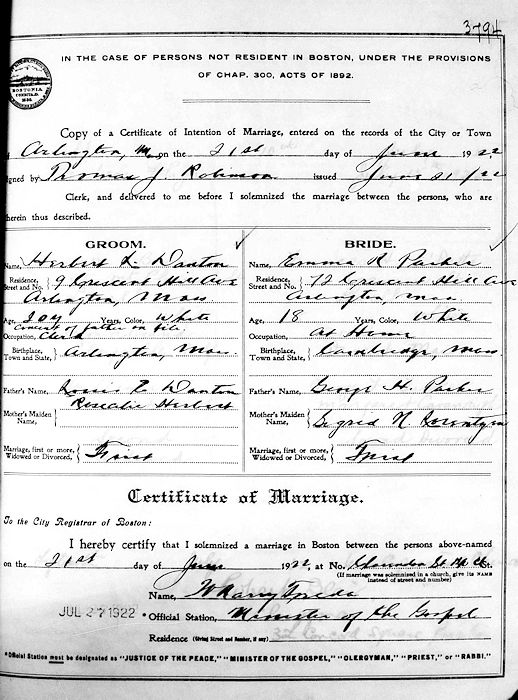 3794
IN THE CASE OF PERSONS NOT RESIDENT IN BOSTON, UNDER THE PROVISIONS
OF CHAP. 300, ACTS OF 1892.
BOSTONIA
Copy of a Certificate of Intention of Marriage, entered on the records of the City or Town
Arlington, Mass on the 21st day of June 1922
igned by Thomas J. Robinson issued June 21/22
Clerk, and delivered to me before I solemnized the marriage between the persons, who are
herein thus described.
GROOM.
Name, Herbert L. Danton
Residence, Street and No. 9 Crescent Hill Ave
Arlington, Mass
Age, 20 y Years, Color, White
Consent of father on file.
Occupation, Clerk
Birthplace, Town and State, Arlington, Mass.
Father's Name, Louis R Danton
Mother's Maiden Name, Rosalie Herbert
Marriage, first or more, Widowed or Divorced, First
BRIDE.
Name, Emma R Parker
Residence, Street and No. 72 Crescent Hill Ave
Arlington, Mass.
Age, 18 Years, Color, White
Occupation, At Home
Birthplace, Town and State, Cambridge, Mass.
Father's Name, George H. Parker
Mother's Maiden Name, Sigrid N.
Marriage, first or more, Widowed or Divorced, First
Certificate of Marriage.
To the City Registrar of Boston:
I hereby certify that I solemnized a marriage in Boston between the persons above-named
on the 21st day of June 1922, at No. St.
(If marriage was solemnized in a church, give its NAME
instead of street and number)
Name, W Harry
JUL 27 1922
* Official Station, Minister of the Gospel
Residence (Giving Street and Number, if any)
* Official Station must be designated as "JUSTICE OF THE PEACE," "MINISTER OF THE GOSPEL," "CLERGYMAN," "PRIEST," or "RABBI."